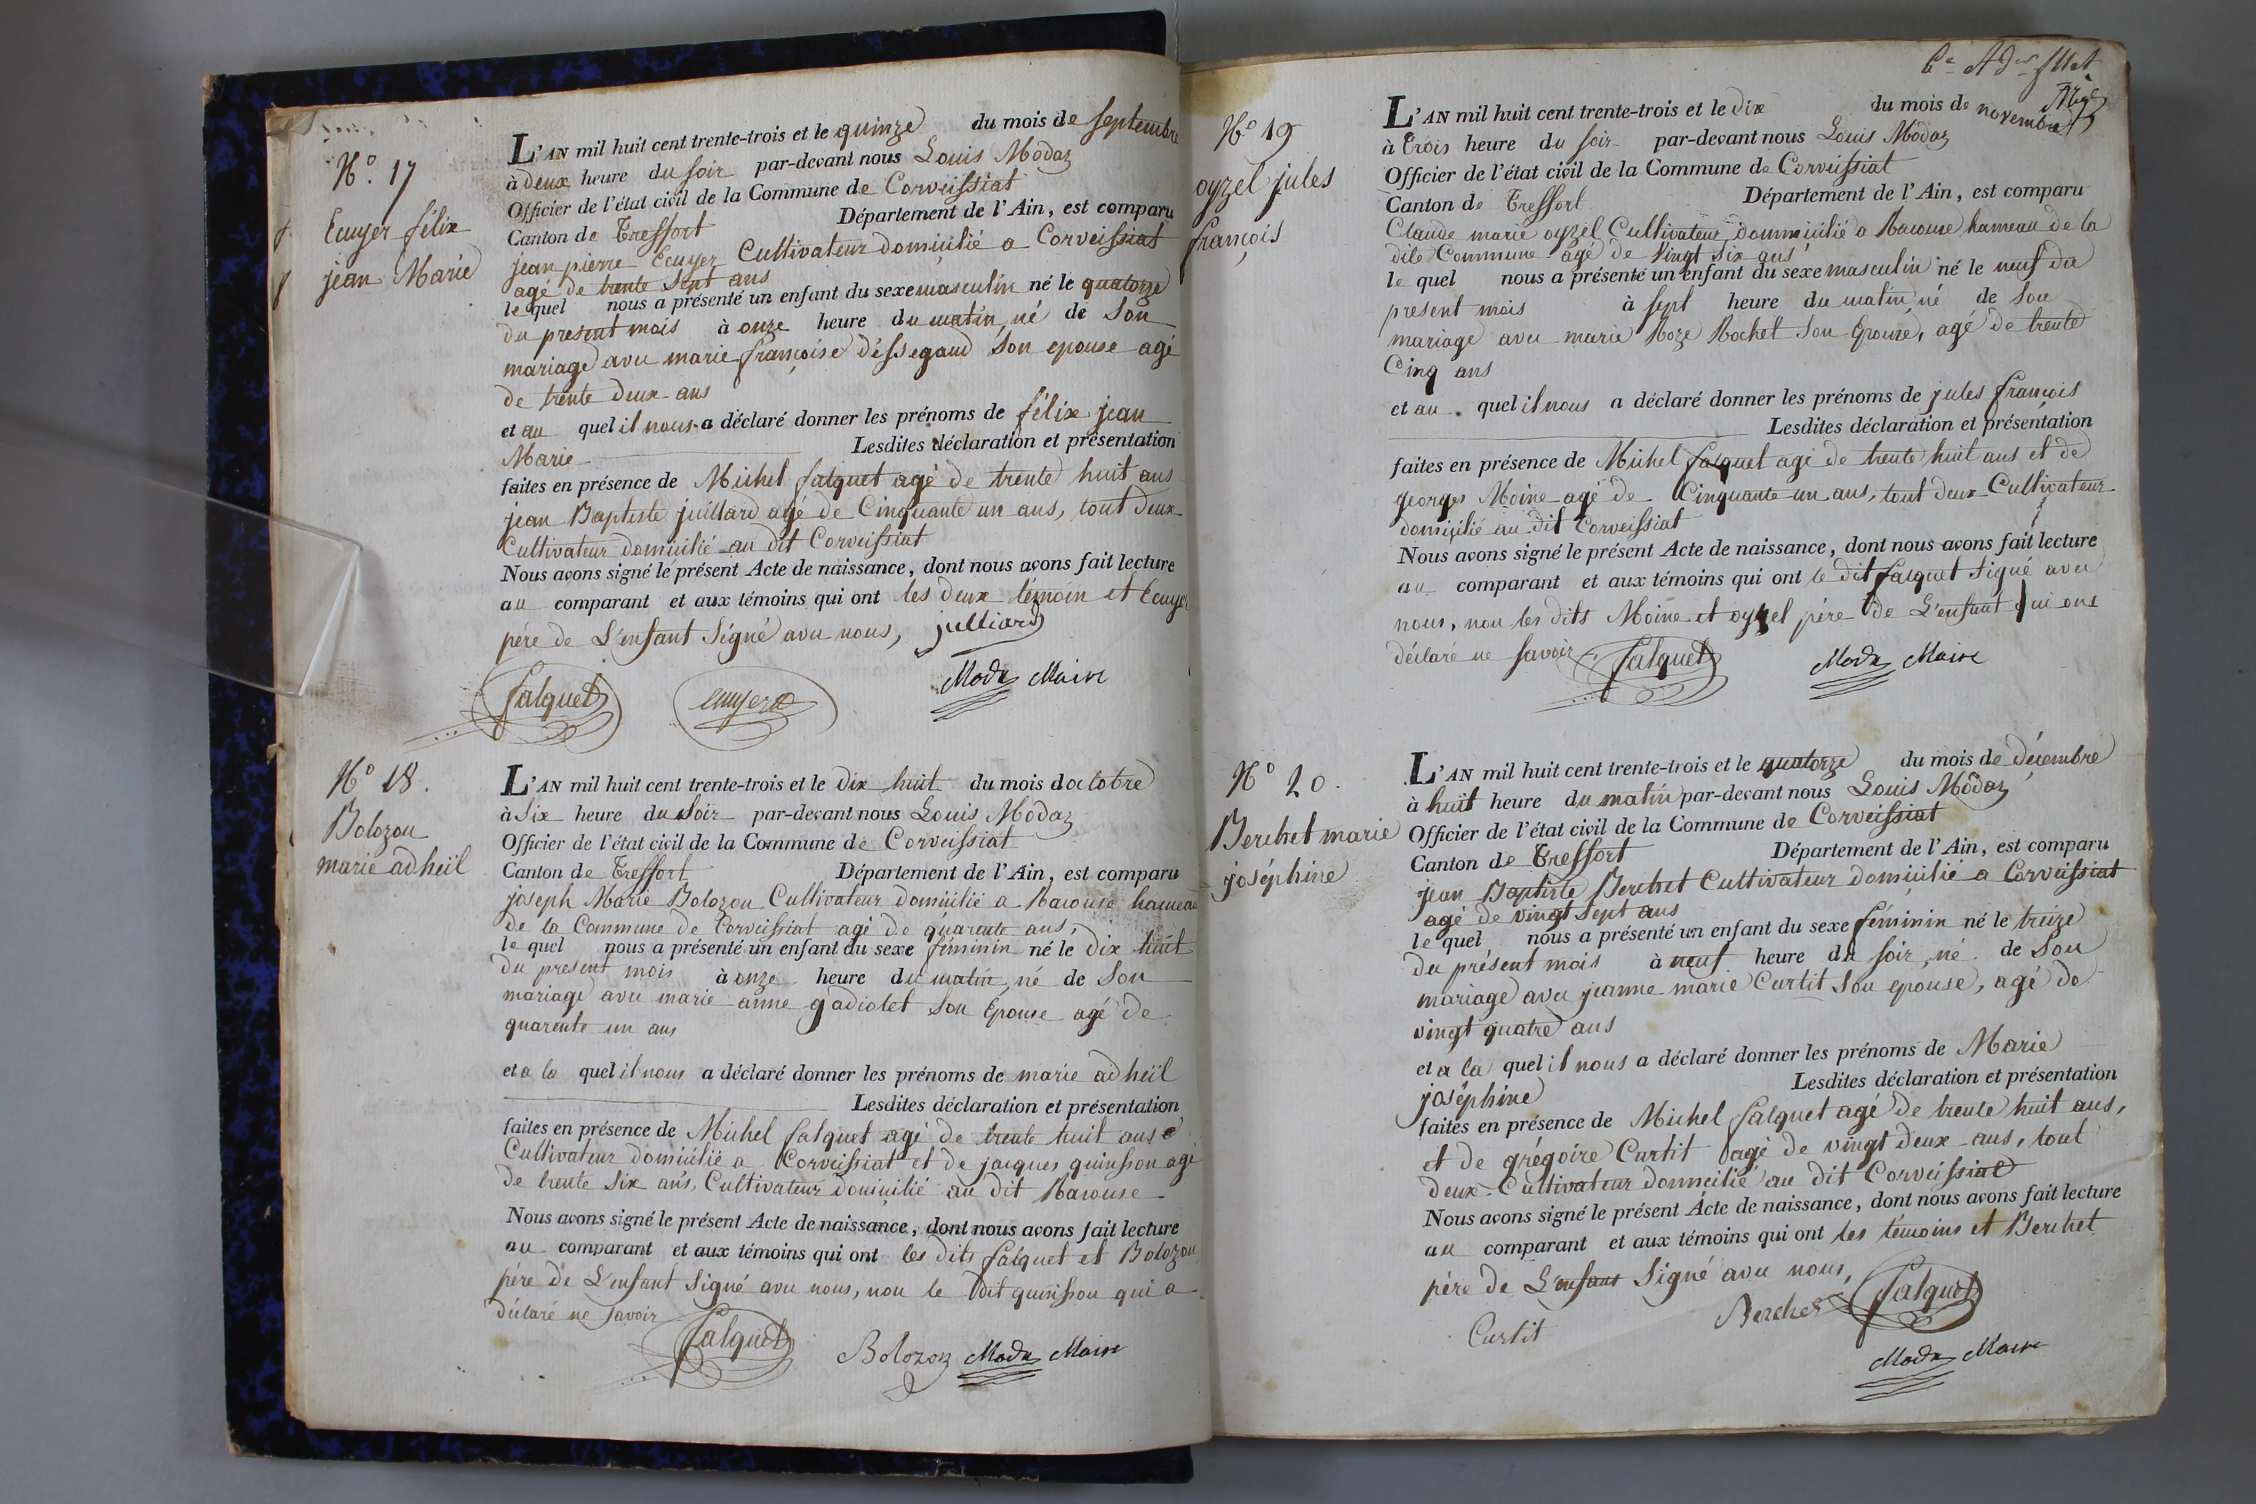 N.° 17
Ecuyer félix
jean Marie
L'AN mil huit cent trente-trois et le quinze du mois de septembre
à deux heure du soir par-devant nous Louis Modaz
Officier de l'état civil de la Commune de Corveissiat
Canton de Treffort Département de l'Ain, est comparu
jean pierre Ecuyer Cultivateur domicilié a Corveissiat
agé de trente sept ans
le quel nous a présenté un enfant du sexe masculin né le quatorze
du present mois à onze heure du matin, né de Son
mariage avec marie françoise déssegaud Son epouse agé
de trente deux ans
et au quel il nous a déclaré donner les prénoms de félix jean
Marie Lesdites déclaration et présentation
faites en présence de Michel falquet agé de trente huit ans
jean Baptiste juillard agé de Cinquante un ans, tout deux
Cultivateur domicilié au dit Corveissiat
Nous avons signé le présent Acte de naissance, dont nous avons fait lecture
au comparant et aux témoins qui ont les deux témoin et Ecuyer
pére de L'enfant Signé avec nous, julliard
falquet ecuyer Modaz Maire
N° 18.
Bolozon
marie adheïl
L'AN mil huit cent trente-trois et le dix huit du mois doctobre
à Six heure du Soir par-devant nous Louis Modaz
Officier de l'état civil de la Commune de Corveissiat
Canton de Treffort Département de l'Ain, est comparu
joseph Marie Bolozon Cultivateur domicilié a Racouse hameau
de la Commune de Corveissiat agé de quarente ans,
le quel nous a présenté un enfant du sexe féminin né le dix huit
du present mois à onze heure du matin, né de Son
mariage avec marie anne gadiolet Son Epouse agé de
quarente un ans
et a la quel il nous a déclaré donner les prénoms de marie adheïl
Lesdites déclaration et présentation
faites en présence de Michel falquet agé de trente huit ans
Cultivateur domicilié a Corveissiat et de jacques quinsson agé
de trente Six ans, Cultivateur domicilié au dit Racouse
Nous avons signé le présent Acte de naissance, dont nous avons fait lecture
au comparant et aux témoins qui ont les dits falquet et Bolozon
pére de L'enfant Signé avec nous, non le dit quinsson qui a
déclaré ne Savoir
falquet Bolozon Modaz Maire
N° 19
oyzel jules
françois
L'AN mil huit cent trente-trois et le dix du mois de novembre
à trois heure du soir par-devant nous Louis Modaz
Officier de l'état civil de la Commune de Corveissiat
Canton de Treffort Département de l'Ain, est comparu
Claude marie oyzel Cultivateur dommicilié a Racouse hameau de la
dite Commune agé de vingt Six ans
le quel nous a présenté un enfant du sexe masculin né le neuf du
present mois à sept heure du matin né de Son
mariage avec marie Roze Rochet Son Epouse, agé de trente
Cinq ans
et au quel il nous a déclaré donner les prénoms de jules françois
Lesdites déclaration et présentation
faites en présence de Michel falquet agé de trente huit ans et de
georges Moine agé de Cinquante un ans, tout deux Cultivateur
domicilié au dit Corveissiat
Nous avons signé le présent Acte de naissance, dont nous avons fait lecture
au comparant et aux témoins qui ont le dit falquet Signé avec
nous, non les dits Moine et oyzel pére de L'enfant qui ont
déclaré ne Savoir falquet Modaz Maire
N° 20.
Berchet marie
joséphine
L'AN mil huit cent trente-trois et le quatorze du mois de décembre
à huit heure du matin par-devant nous Louis Modaz
Officier de l'état civil de la Commune de Corveissiat
Canton de Treffort Département de l'Ain, est comparu
jean Baptiste Berchet Cultivateur domicilié a Corveissiat
agé de vingt sept ans
le quel nous a présenté un enfant du sexe féminin né le treize
du présent mois à neuf heure du soir, né de Son
mariage avec jeanne marie Curtit Son epouse, agé de
vingt quatre ans
et a la quel il nous a déclaré donner les prénoms de Marie
joséphine Lesdites déclaration et présentation
faites en présence de Michel falquet agé de trente huit ans,
et de grégoire Curtit agé de vingt deux ans, tout
deux Cultivateur domicilié au dit Corveissiat
Nous avons signé le présent Acte de naissance, dont nous avons fait lecture
au comparant et aux témoins qui ont les témoins et Berchet
pére de L'enfant Signé avec nous,
Curtit Berchet falquet
Modaz Maire